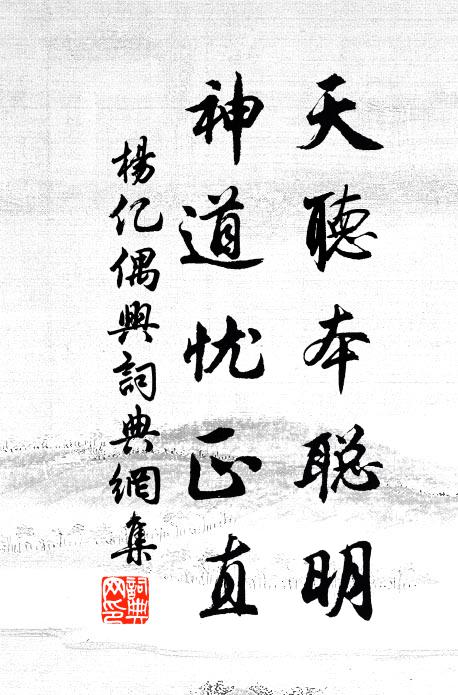 天聽本聪明
神道忧正直
楊亿偶興詞典網集
詞典网印